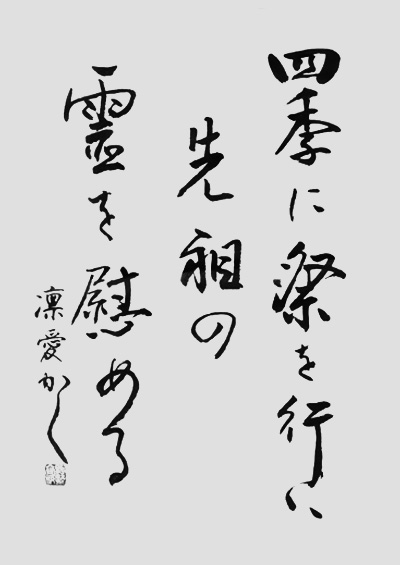 四季に祭を行い
先祖の
霊を慰める
凛愛かく